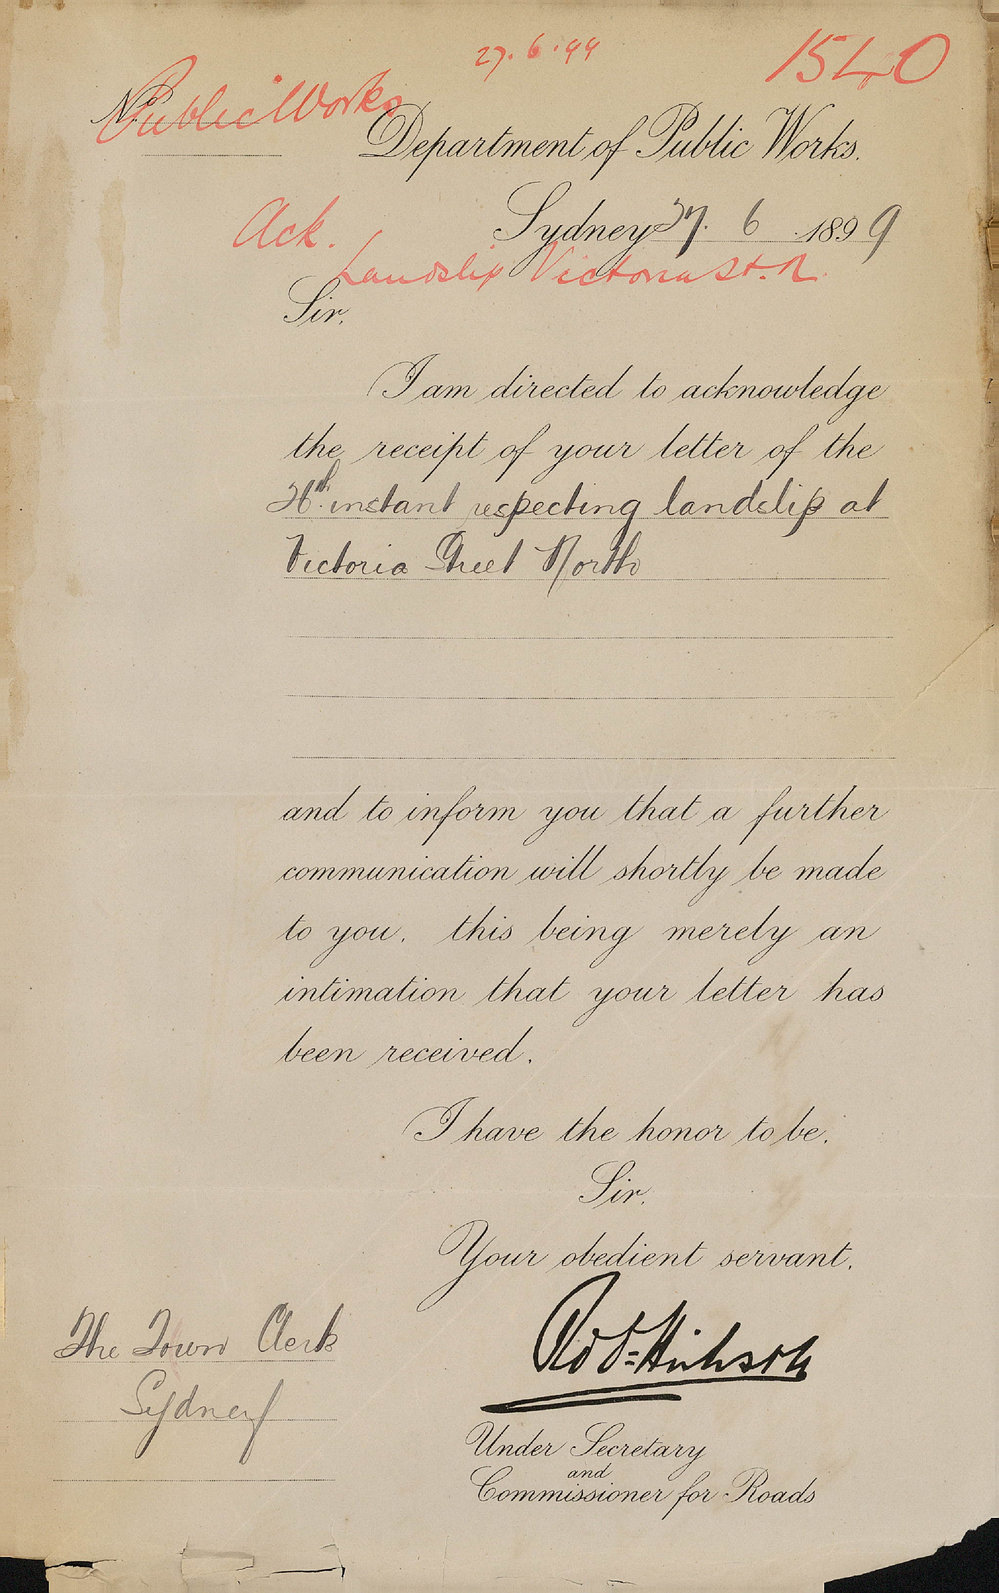 27.6.99
1540
No.
Public Works
Department of Public Works.
Ack.
Sydney 27. 6 1899
Landslip Victoria St. N.
Sir,
I am directed to acknowledge
the receipt of your letter of the
26th instant respecting landslip at
Victoria Street North
and to inform you that a further
communication will shortly be made
to you, this being merely an
intimation that your letter has
been received.
I have the honor to be,
Sir,
Your obedient servant,
Robt Hickson
The Town Clerk
Sydney
Under Secretary
and
Commissioner for Roads